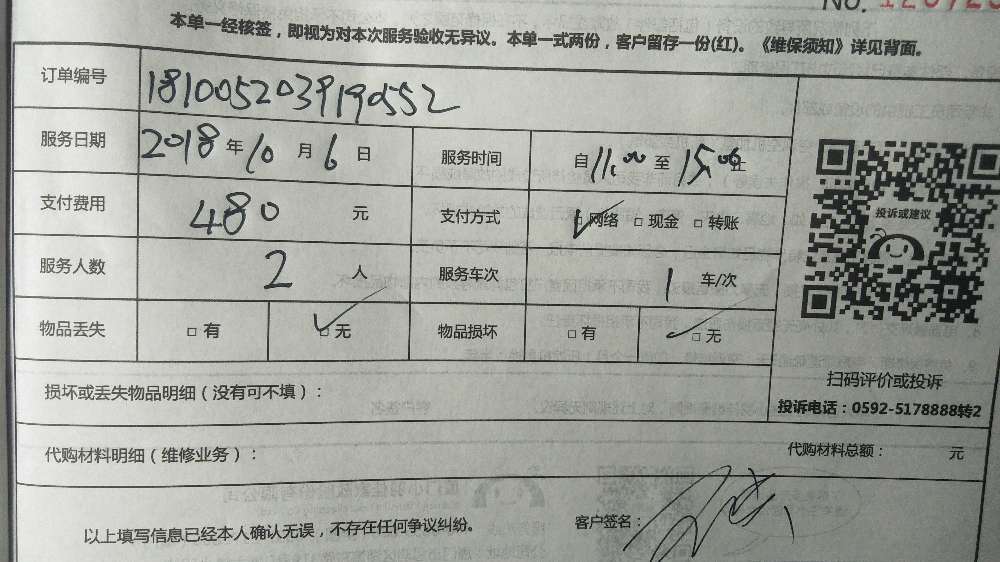 No.
本单一经核签，即视为对本次服务验收无异议。本单一式两份，客户留存一份(红)。《维保须知》详见背面。
订单编号 1810052039190552
服务日期 2018 年 10 月 6 日 服务时间 自 11:00 至 15:00 止
支付费用 480 元 支付方式 □ 网络 □ 现金 □ 转账
服务人数 2 人 服务车次 1 车/次
物品丢失 □ 有 □ 无 物品损坏 □ 有 □ 无
投诉或建议
扫码评价或投诉
投诉电话：0592-5178888转2
损坏或丢失物品明细（没有可不填）：
代购材料明细（维修业务）： 代购材料总额： 元
以上填写信息已经本人确认无误，不存在任何争议纠纷。 客户签名：